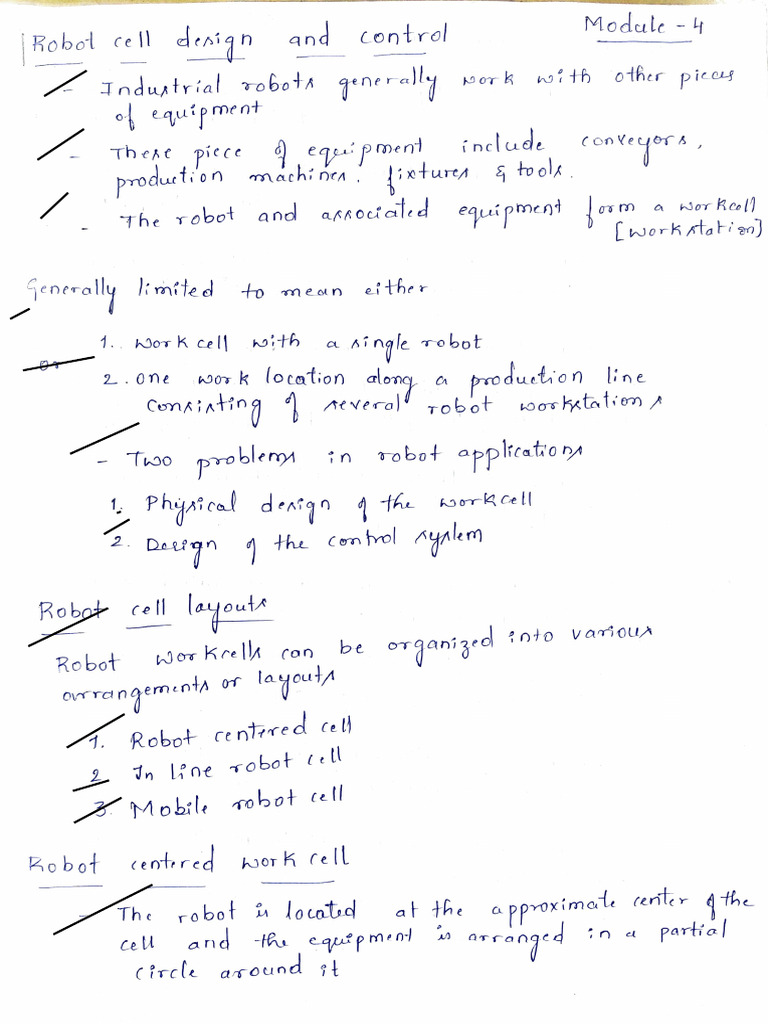 Module - 4
Robot cell design and control
- Industrial robots generally work with other pieces
of equipment
- These piece of equipment include conveyors,
production machines, fixtures & tools.
- The robot and associated equipment form a workcell
[workstation]
Generally limited to mean either
1. work cell with a single robot
or
2. one work location along a production line
consisting of several robot workstations
- Two problems in robot applications
1. Physical design of the workcell
2. Design of the control system
Robot cell layouts
Robot workcells can be organized into various
arrangements or layouts
1. Robot centered cell
2 In line robot cell
3. Mobile robot cell
Robot centered work cell
- The robot is located at the approximate center of the
cell and the equipment is arranged in a partial
circle around it